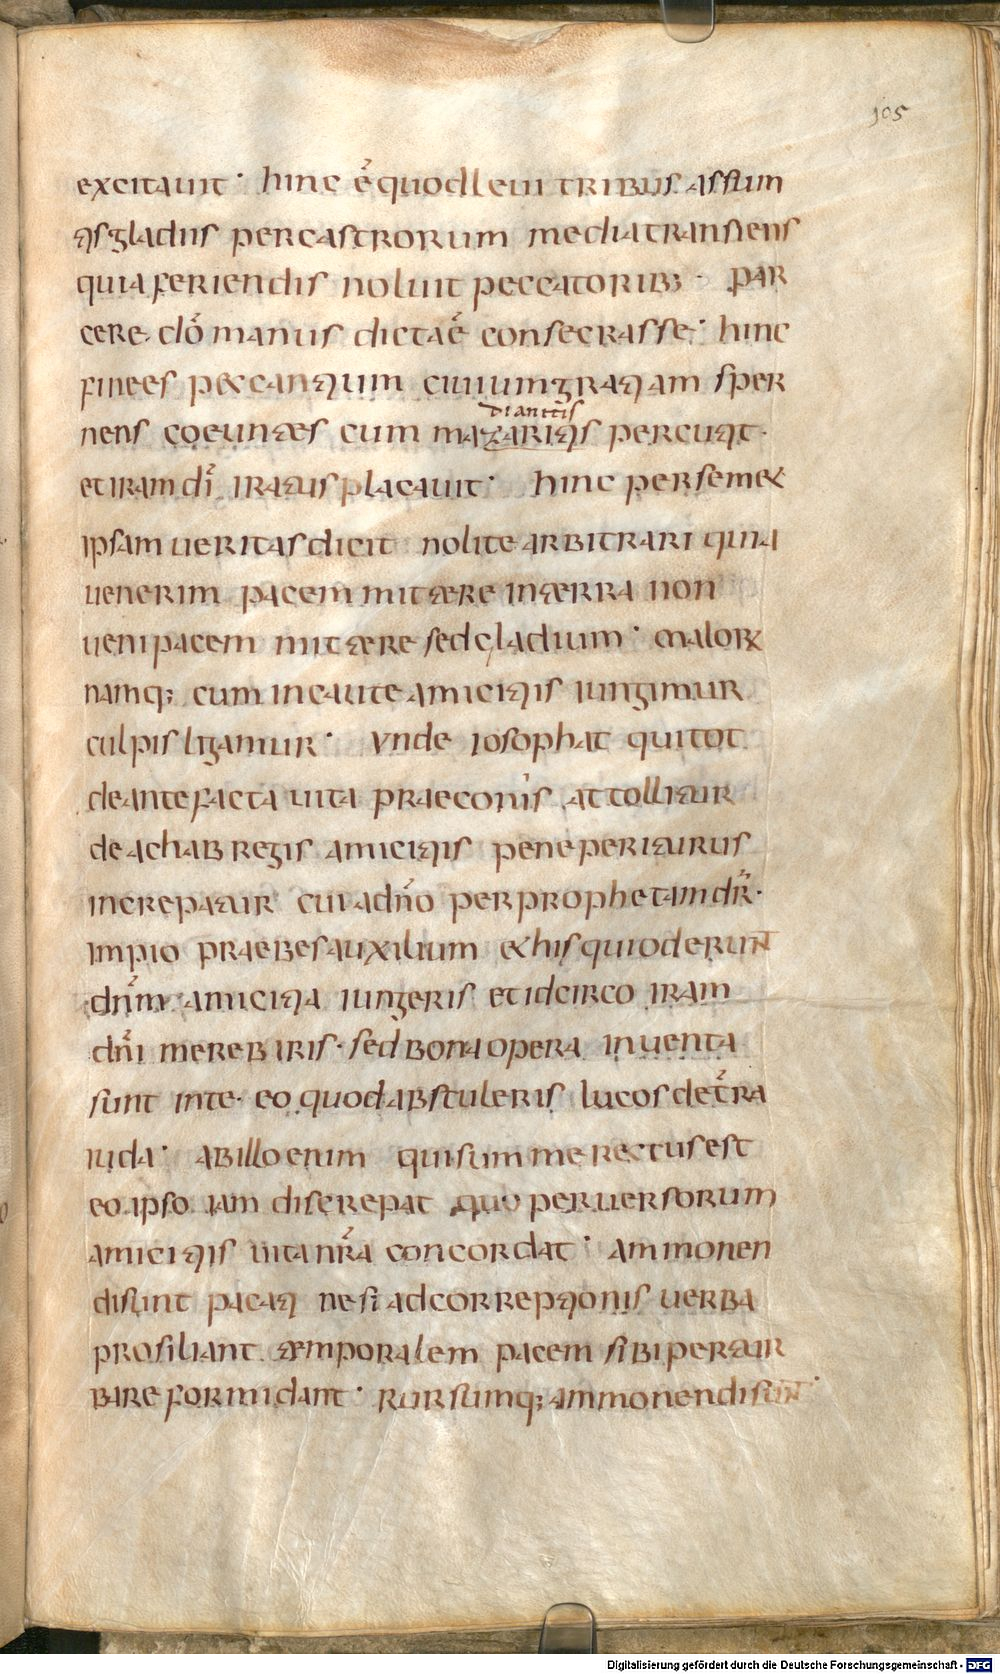 105
excitauit · hinc ē quod leui tribus assum
tis gladiis per castrorum media transiens
quia feriendis noluit peccatorib; · par
cere. dō manus dicta ē consecrasse · hinc
finees peccantium ciuium gratiam sper
diantitis
nens coeuntes cum mazaritis percutit ·
et iram dī iratus placauit · hinc per semet
ipsam ueritas dicit nolite arbitrari quia
uenerim pacem mittere in terra non
ueni pacem mittere sed gladium · malorꝝ
namq; cum incaute amicitiis iungimur
culpis ligamur · Vnde iosophat qui tot
de ante facta uita praeconiis attollitur
de achab regis amicitiis pene periturus
increpatur cui a dño per prophetam dr̄ ·
impio praebes auxilium et his qui oderunt
dnm̄ amicitia iungeris et idcirco iram
dñi merebiris · sed bona opera inuenta
sunt in te · eo quod abstuleris lucos de tr̄a
iuda · ab illo enim qui summe rectus est
eo ipso iam discrepat quo peruersorum
amicitiis uita nr̄a concordat · ammonen
di sunt pacati ne si ad correptionis uerba
prosiliant temporalem pacem sibi pertur
bare formidant · rursumq; ammonendi sunt ·
Digitalisierung gefördert durch die Deutsche Forschungsgemeinschaft - DFG